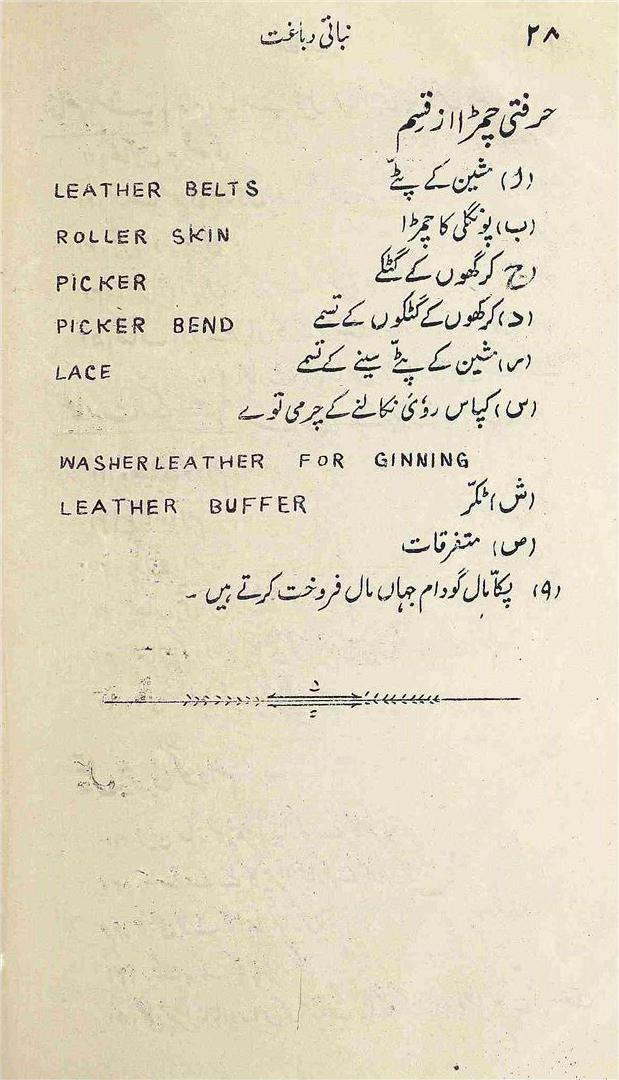 ۲۸ نباتی دباغت
حرفتی چمڑا از قسِم
(ا) مشین کے پٹّے LEATHER BELTS
(ب) پونگلی کا چمڑا ROLLER SKIN
(ج) کرگھوں کے گٹکے PICKER
(د) کرگھوں کے گٹکوں کے تسمے PICKER BEND
(ر) مشین کے پٹّے سینے کے تسمے LACE
(س) کپاس روئی نکالنے کے چرمی توے
WASHERLEATHER FOR GINNING
(ش) ٹکّر LEATHER BUFFER
(ص) متفرقات
(۹) پکّا مال گودام جہاں مال فروخت کرتے ہیں ۔